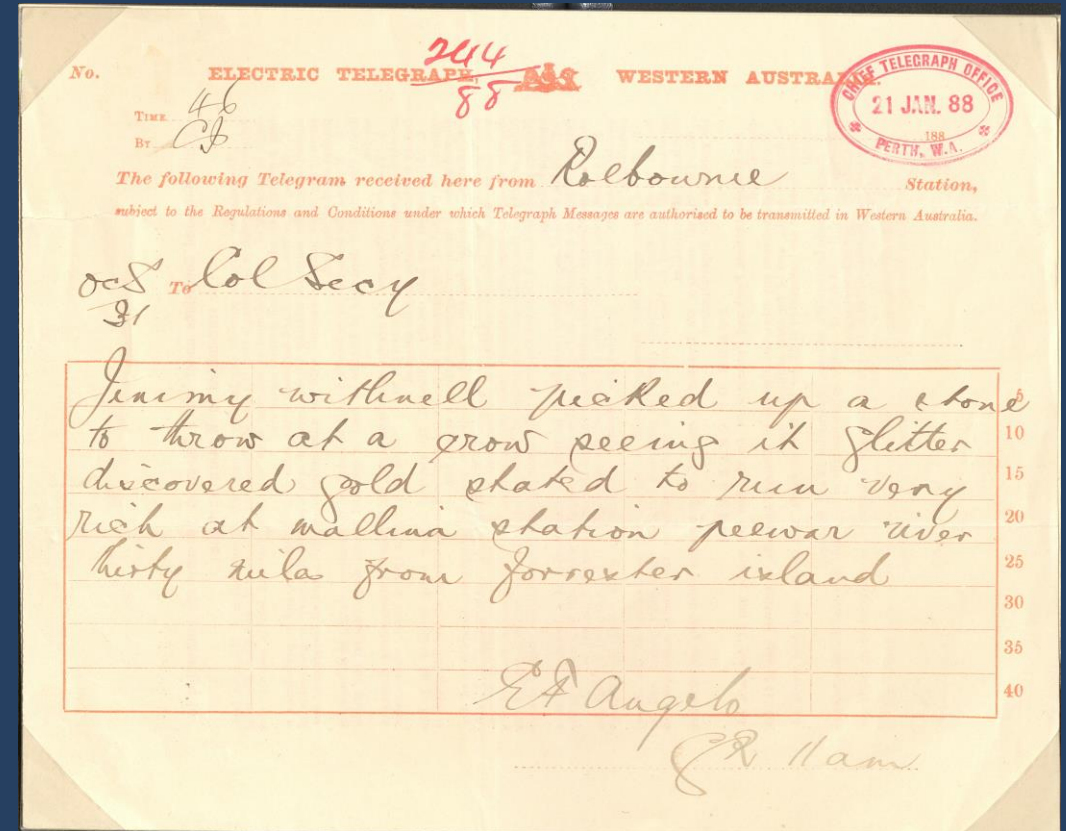 244
88
No. ELECTRIC TELEGRAPH, WESTERN AUSTRALIA.
CHIEF TELEGRAPH OFFICE
21 JAN. 88
188
PERTH, W.A.
TIME 46
BY
The following Telegram received here from Roebourne Station,
subject to the Regulations and Conditions under which Telegraph Messages are authorised to be transmitted in Western Australia.
To Col Secy
31
Jimmy withnell picked up a stone 5
to throw at a crow seeing it glitter 10
discovered gold stated to run very 15
rich at mallina station peewar river 20
thirty miles from forrester island 25
30
35
40
E F Angelo